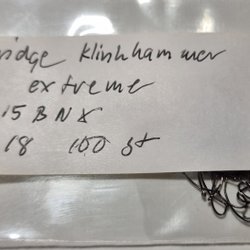 ridge Klinkhammer
extreme
15 B N X
18 100 st